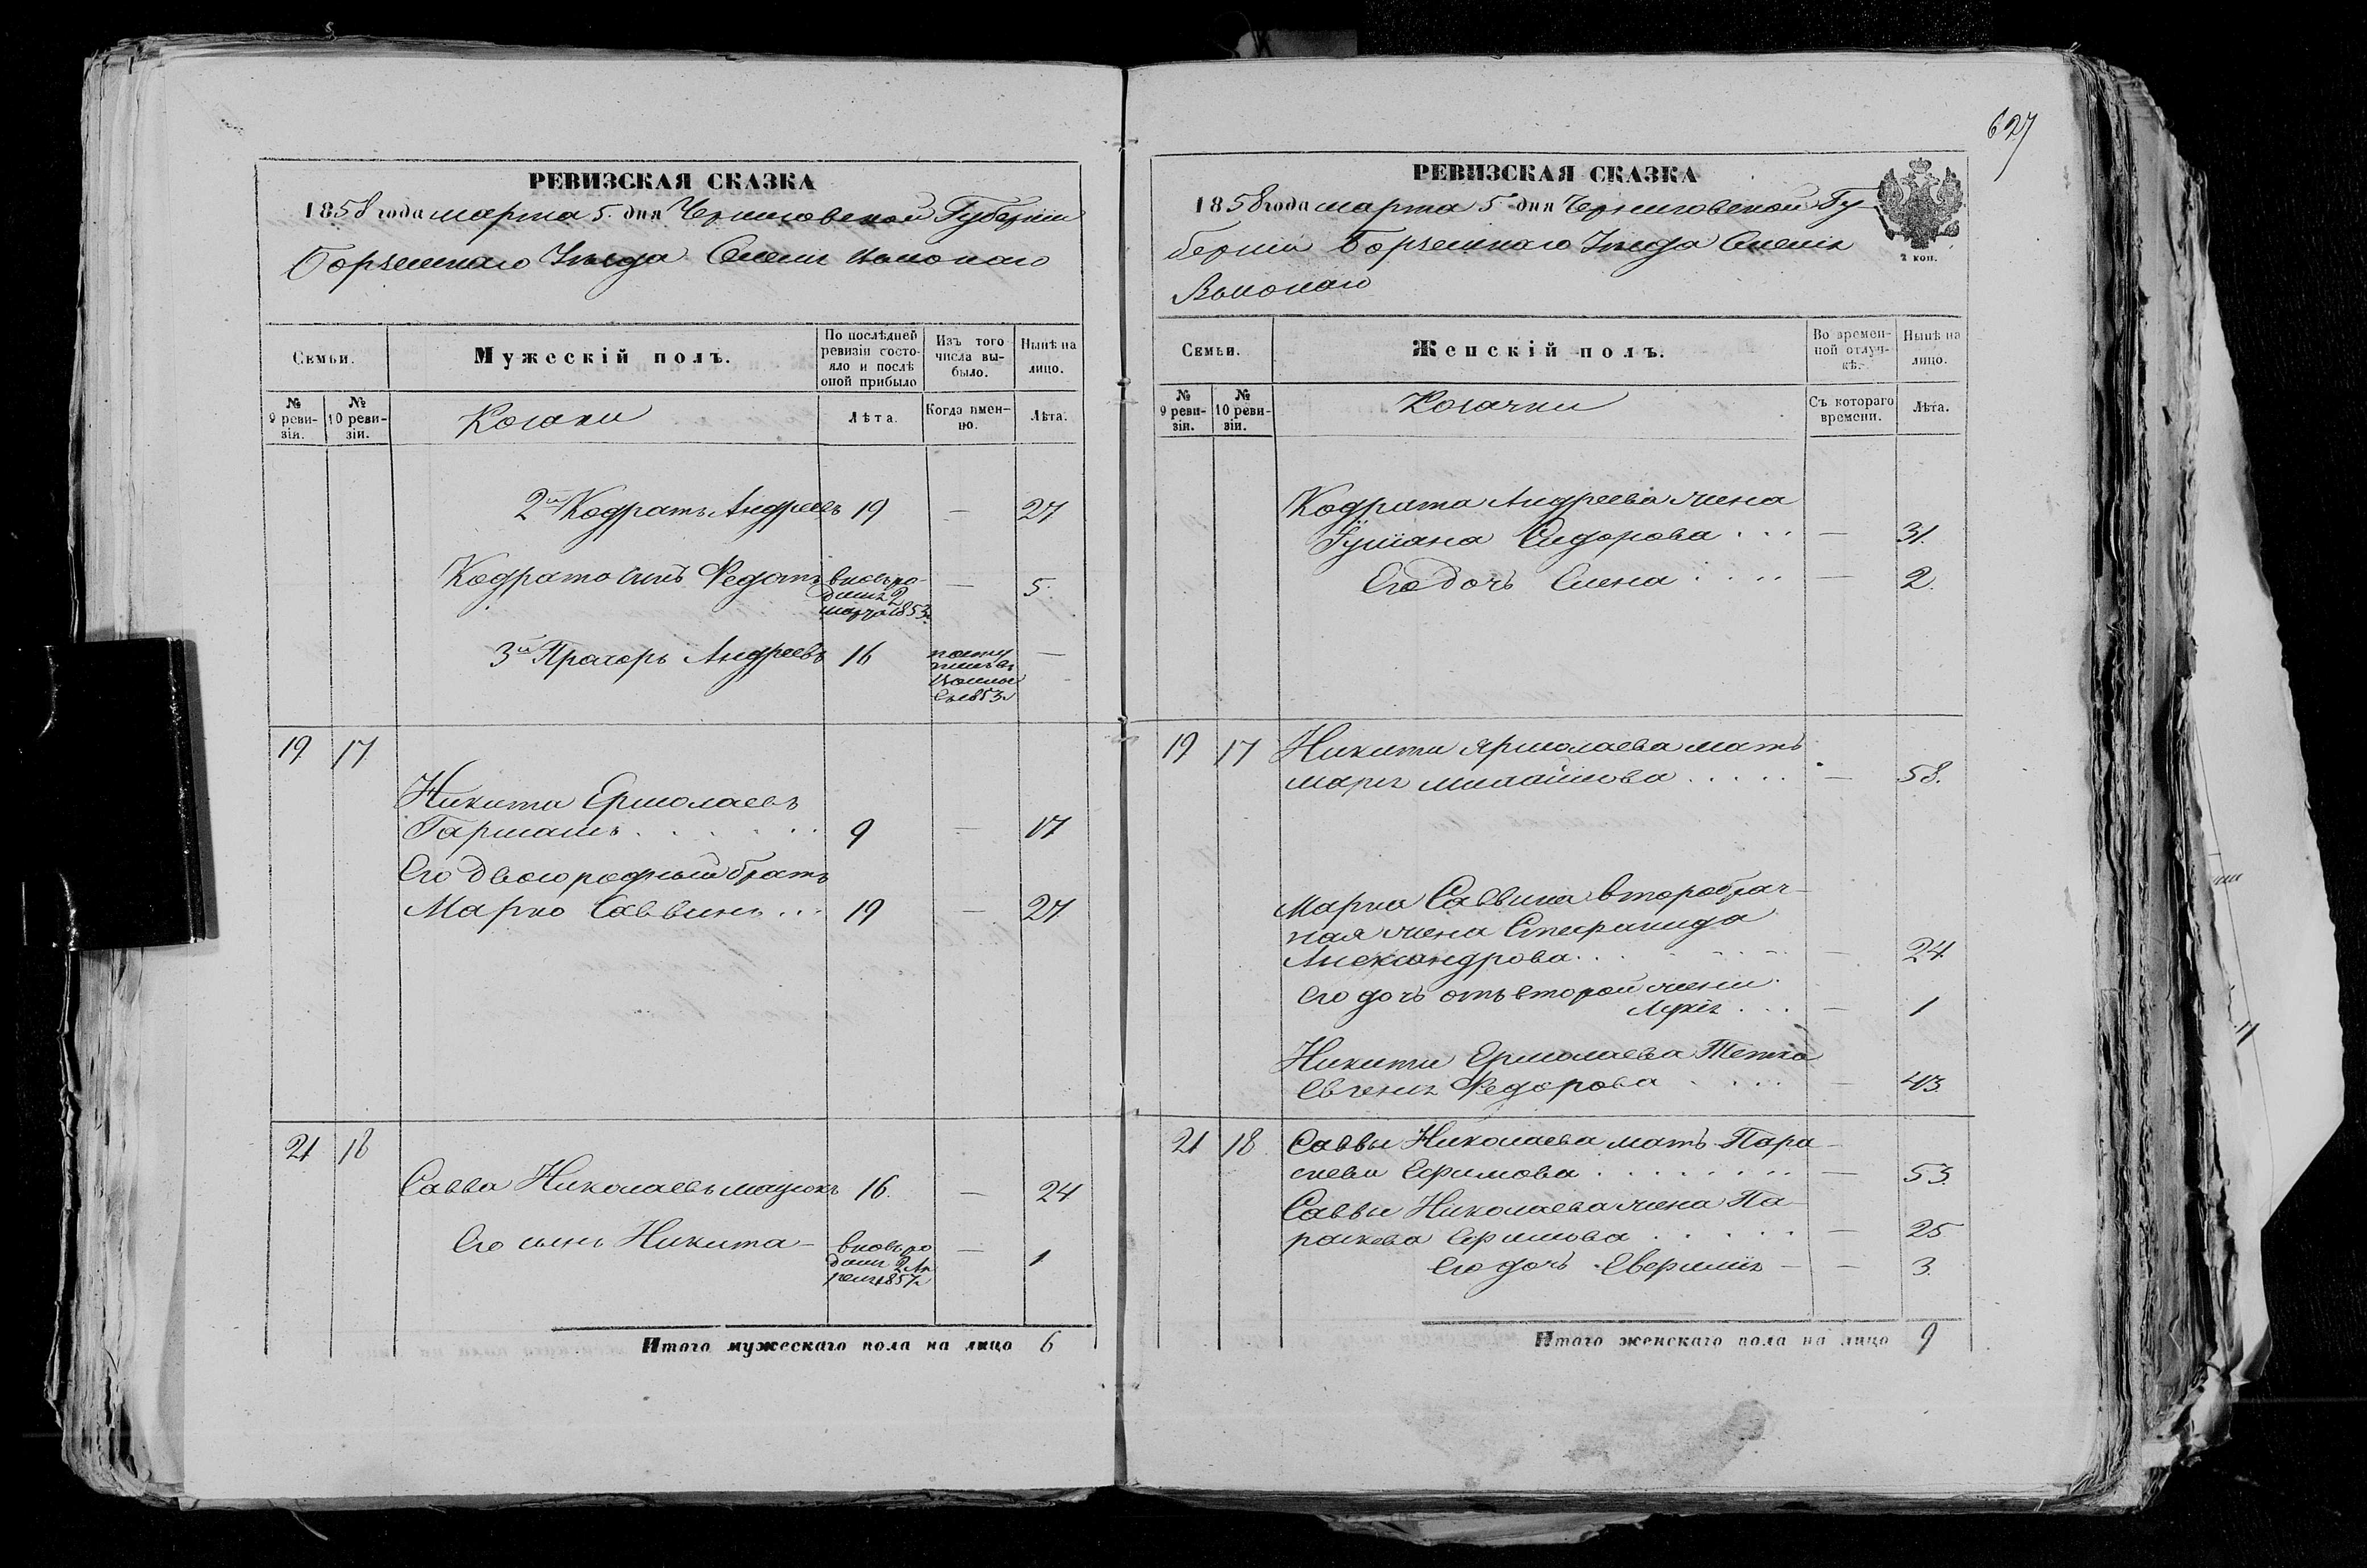 627
РЕВИЗСКАЯ СКАЗКА
1858 года марта 5 дня Черниговской Губерніи
Борзенскаго Уезда Селенія
Семьи.
Мужескій полъ.
По послѣдней ревизіи состояло и послѣ оной прибыло
Изъ того числа выбыло.
Нынѣ на лицо.
№ 9 ревизіи.
№ 10 ревизіи.
Козаки
Лѣта.
Когда именно.
Лѣта.
2й Кодратъ Андреевъ 19 — 27
Кодрата сынъ Федотъ вновь ро- — 5.
денъ 2
марта 1853
3й Прохоръ Андреевъ 16 —
1853
19 17
Никита Ермолаевъ
. . . . . . 9 — 17
Его двоюродный братъ
Марко Саввинъ . . . 19 — 27
21 18
Савва Николаевъ 16. — 24
Его сынъ Никита — вновь ро — 1
денъ 2 Ап
реля 1857
Итого мужескаго пола на лицо 6
РЕВИЗСКАЯ СКАЗКА
1858 года марта 5 дня Черниговской Гу
берніи Борзенскаго Уезда Селенія
2 коп.
Семьи.
Женскій полъ.
Во временной отлучкѣ.
Нынѣ на лицо.
№ 9 ревизіи.
№ 10 ревизіи.
Козачки
Съ котораго времени.
Лѣта.
Кодрата Андреева жена
Сидорова . . . — 31.
Его дочь Елена . . . . — 2.
19 17 Никиты Ярмолаева мать
Марія . . . . . — 58.
Марка Саввина второбрач-
ная жена Степанида
Александрова . . . — 24.
Его дочь отъ второй жены
. . . — 1
Никиты Ермолаева Тетка
Евгенія Федорова . . . . — 43.
21 18. Саввы Николаева мать Пара-
скева Ефимова . . . . . . . — 53.
Саввы Николаева жена Па-
раскева Ефимова . . . . . — 25
Его дочь — — 3.
Итого женскаго пола на лицо 9